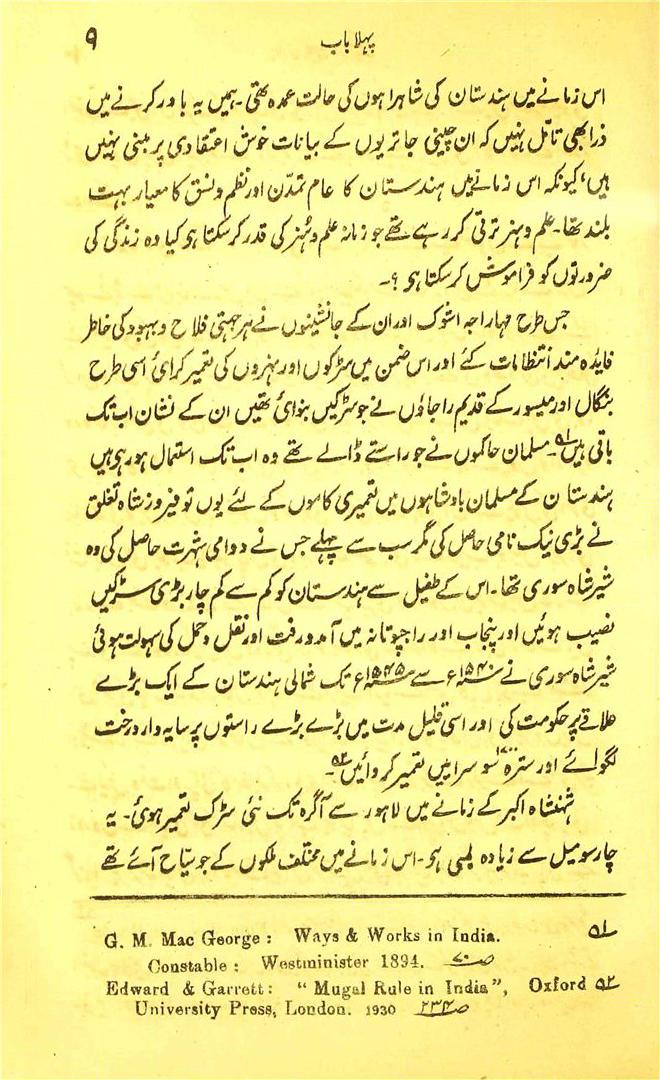 ۹ پہلا باب
اس زمانے میں ہندستان کی شاہراہوں کی حالت عمدہ تھی۔ ہمیں یہ باور کرنے میں
ذرا بھی تامّل نہیں کہ ان چینی جاتریوں کے بیانات خوش اعتقادی پر مبنی نہیں
ہیں، کیونکہ اس زمانے میں ہندستان کا عام تمدّن اور نظم و نسق کا معیار بہت
بلند تھا۔ علم و ہنر ترقی کر رہے تھے جو زمانہ علم و ہنر کی قدر کرسکتا ہی کیا وہ زندگی کی
ضرورتوں کو فراموش کرسکتا ہی ؟۔
جس طرح مہاراجہ اشوک اور ان کے جانشینوں نے ہر جہتی فلاح و بہبود کی خاطر
فائدہ مند انتظامات کئے اور اس ضمن میں سڑکوں اور نہروں کی تعمیر کرائی اسی طرح
بنگال اور میسور کے قدیم راجاؤں نے جو سڑکیں بنوائی تھیں ان کے نشان اب تک
باقی ہیں ۵۱۔ مسلمان حاکموں نے جو راستے ڈالے تھے وہ اب تک استمال ہو رہی ہیں
ہندستان کے مسلمان بادشاہوں میں تعمیری کاموں کے لئے یوں تو فیروز شاہ تغلق
نے بڑی نیک نامی حاصل کی مگر سب سے پہلے جس نے دوامی شہرت حاصل کی وہ
شیر شاہ سوری تھا۔ اس کے طفیل سے ہندستان کو کم سے کم چار بڑی سڑکیں
نصیب ہوئیں اور پنجاب اور راجپوتانہ میں آمدورفت اور نقل و حمل کی سہولت ہوئی
شیر شاہ سوری نے ۱۵۴۰ء سے ۱۵۴۵ء تک شمالی ہندستان کے ایک بڑے
علاقے پر حکومت کی اور اسی قلیل مدت میں بڑے بڑے راستوں پر سایہ دار درخت
لگوائے اور سترہ سو سرائیں تعمیر کروائیں ۵۲۔
شہنشاہ اکبر کے زمانے میں لاہور سے آگرہ تک نئی سڑک تعمیر ہوئی۔ یہ
چار سو میل سے زیادہ لمبی ہی۔ اس زمانے میں مختلف ملکوں کے جو سیّاح آئے تھے
G. M. Mac George : Ways & Works in India. ۵۱
Constable : Westminister 1894. ص۷۰
Edward & Garrett : “ Mugal Rule in India”, Oxford ۵۲
University Press, London. 1930 ص۲۳۴